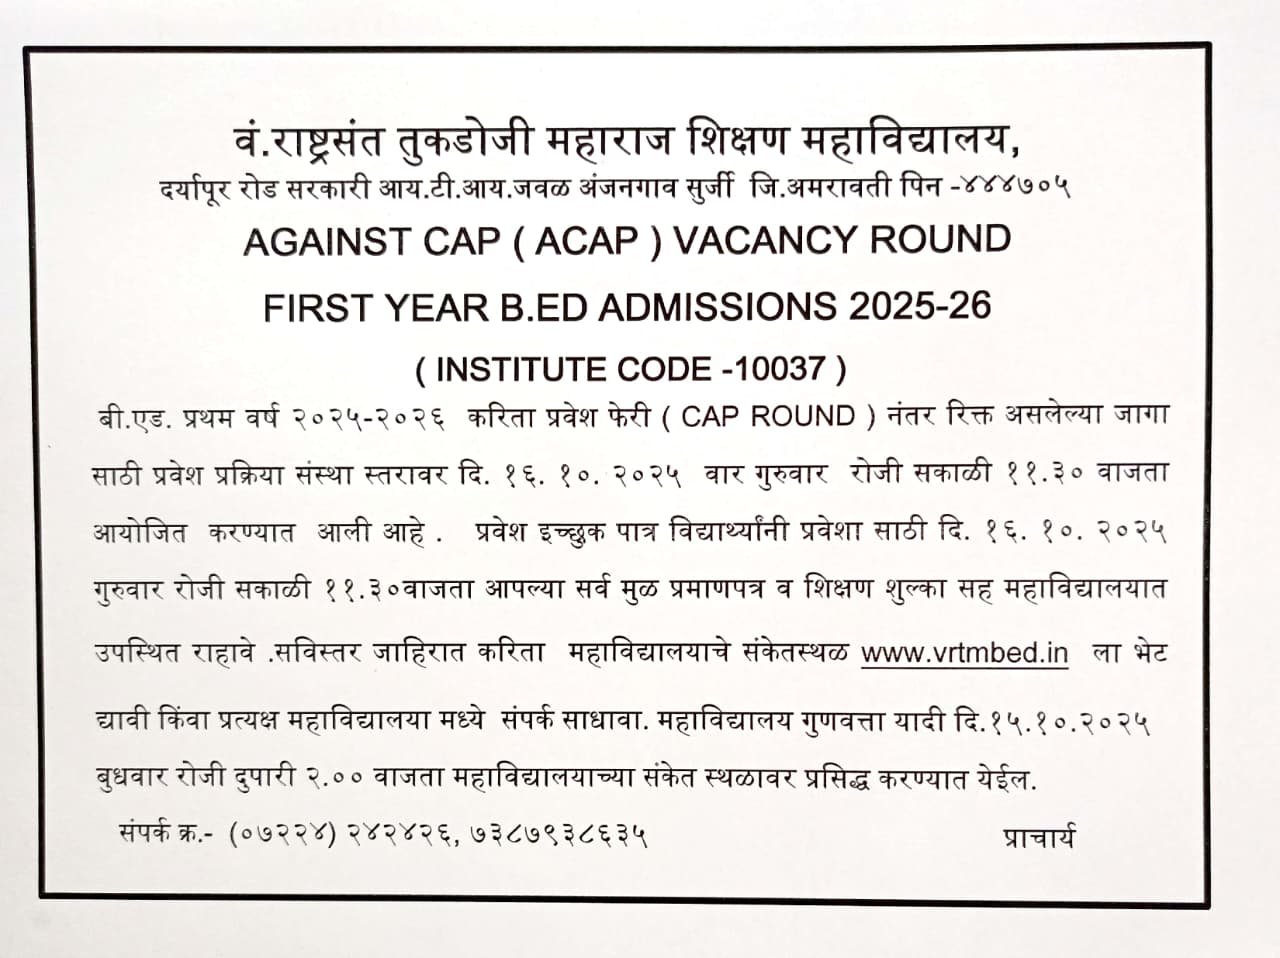 वं.राष्ट्रसंत तुकडोजी महाराज शिक्षण महाविद्यालय,
दर्यापूर रोड सरकारी आय.टी.आय.जवळ अंजनगाव सुर्जी जि.अमरावती पिन -४४४७०५
AGAINST CAP ( ACAP ) VACANCY ROUND
FIRST YEAR B.ED ADMISSIONS 2025-26
( INSTITUTE CODE -10037 )
बी.एड. प्रथम वर्ष २०२५-२०२६ करिता प्रवेश फेरी ( CAP ROUND ) नंतर रिक्त असलेल्या जागा
साठी प्रवेश प्रक्रिया संस्था स्तरावर दि. १६. १०. २०२५ वार गुरुवार रोजी सकाळी ११.३० वाजता
आयोजित करण्यात आली आहे . प्रवेश इच्छुक पात्र विद्यार्थ्यांनी प्रवेशा साठी दि. १६. १०. २०२५
गुरुवार रोजी सकाळी ११.३०वाजता आपल्या सर्व मुळ प्रमाणपत्र व शिक्षण शुल्का सह महाविद्यालयात
उपस्थित राहावे .सविस्तर जाहिरात करिता महाविद्यालयाचे संकेतस्थळ www.vrtmbed.in ला भेट
द्यावी किंवा प्रत्यक्ष महाविद्यालया मध्ये संपर्क साधावा. महाविद्यालय गुणवत्ता यादी दि.१५.१०.२०२५
बुधवार रोजी दुपारी २.०० वाजता महाविद्यालयाच्या संकेत स्थळावर प्रसिद्ध करण्यात येईल.
संपर्क क्र.- (०७२२४) २४२४२६, ७३८७९३८६३५ प्राचार्य